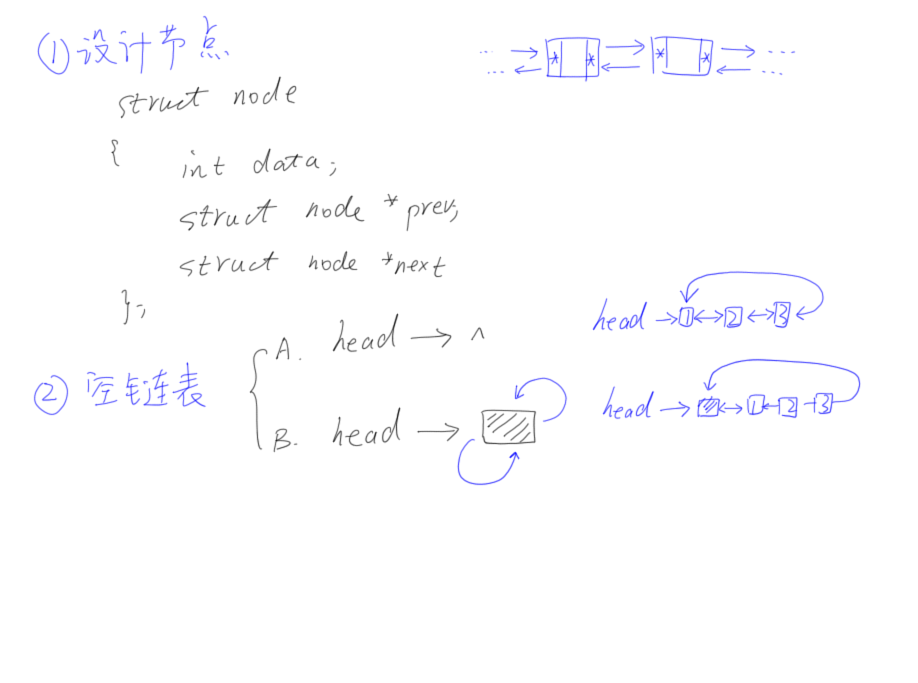 ① 设计节点
struct node
{
int data;
struct node *prev;
struct node *next
};
② 空链表
A. head → ^
B. head →
... * * * * ...
... ...
head → 1 ↔ 2 ↔ 3
head → ↔ 1 2 3